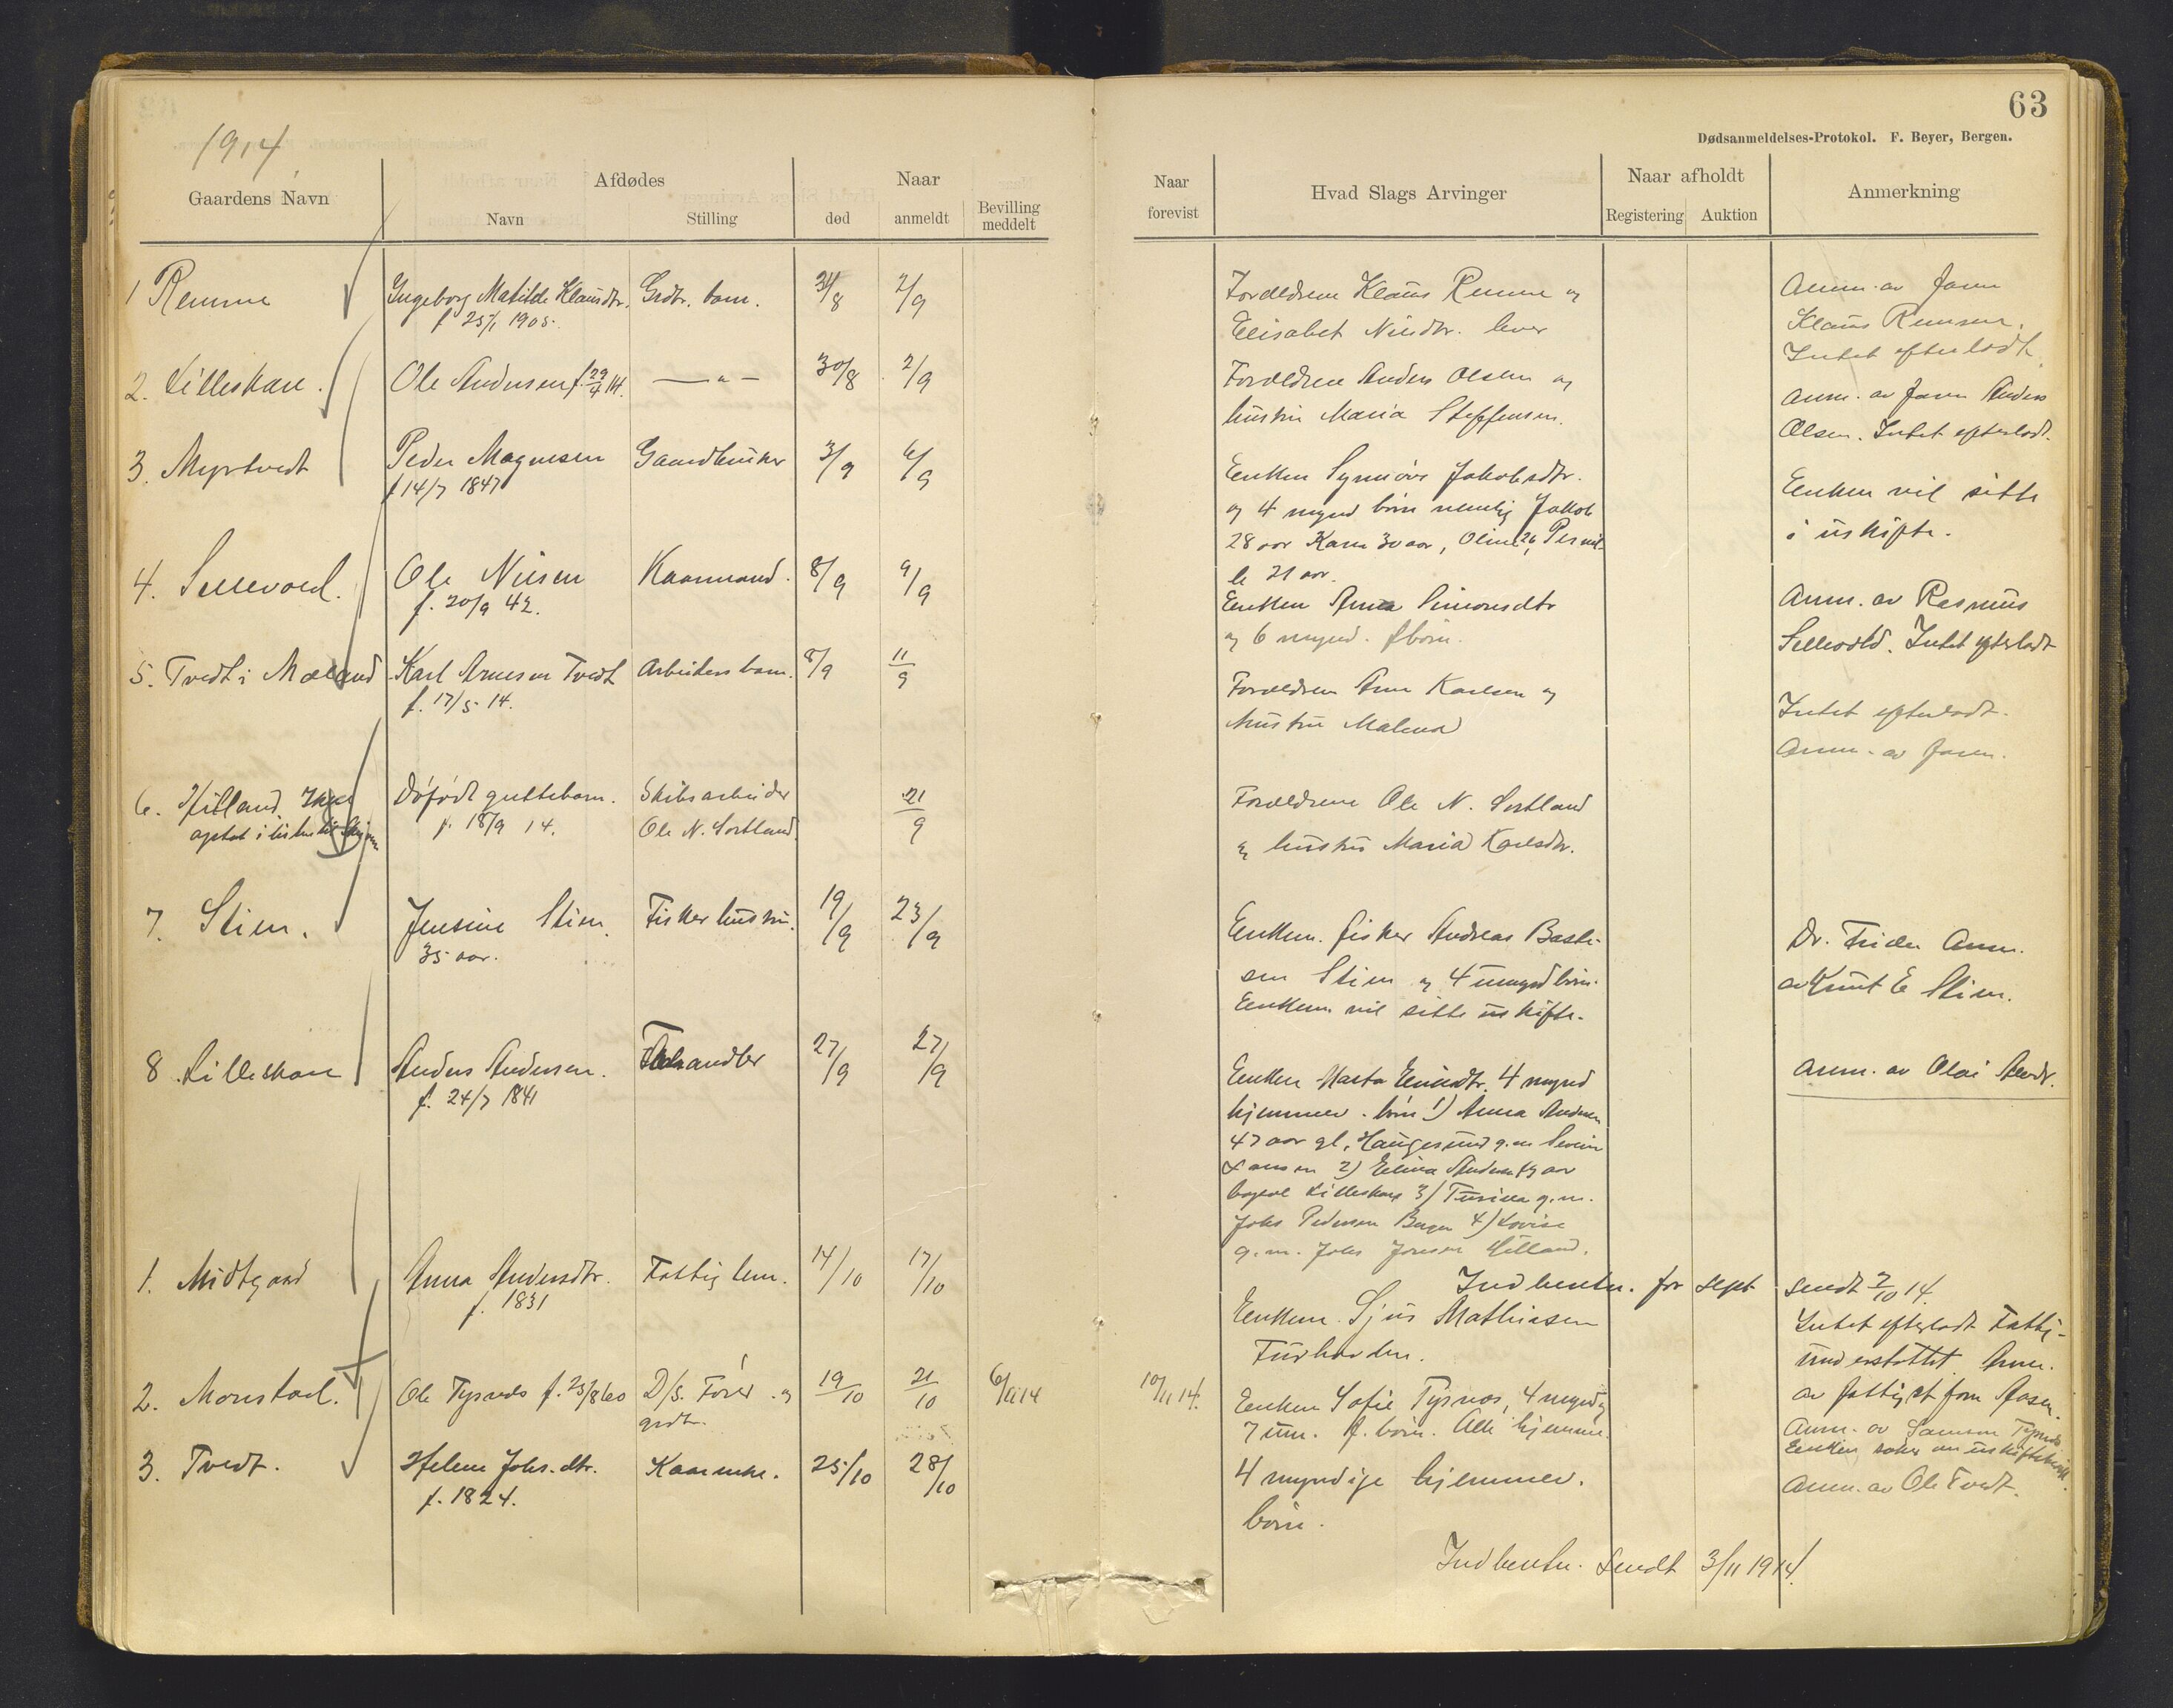 63
Dødsanmeldelses-Protokol. F. Beyer, Bergen.
1914
Gaardens Navn
Afdødes
Navn
Stilling
Naar
død
anmeldt
Bevilling
meddelt
Naar
forevist
Hvad Slags Arvinger
Naar afholdt
Registering
Auktion
Anmerkning
1 Remme
Ingeborg Matilde Klausdtr.
f 25/1 1905.
Grdbr. barn.
31/8
2/9
Forældrene Klaus Remme og
Elisabet Nilsdtr. lever
Anm. av faren
Klaus Remme.
Intet efterladt.
2. Lilleskare.
Ole Andersen f. 29/4 14.
— " —
30/8
2/9
Forældrene Anders Olsen og
hustru Maria Steffensen.
Anm. av faren Anders
Olsen. Intet efterladt.
3. Myrtvedt
Peder Magnesen
f 14/7 1847
Gaardbruker
3/9
6/9
Enken Synnøve Jakobsdtr.
og 4 mynd børn nemlig Jakob
28 aar Karn 30 aar, Oline 26, Pernil-
le 21 aar.
Enken vil sitte
i uskifte.
4. Sellevold.
Ole Nilsen
f. 20/9 42.
Kaarmand.
8/9
9/9
Enken Anna Simonsdtr
og 6 mynd. børn.
Anm. av Rasmus
Sellevold. Intet efterladt
5. Tvedt i Mæland
Karl Arnesen Tvedt
f. 17/5 14.
Arbeiders barn.
8/9
11/9
Forældrene Arne Karlsen og
hustru Malena
Intet efterladt.
Anm. av faren.
6. Hilland. Ikke
optat i listen til
Døfødt guttebarn.
f. 18/9 14.
Skibsarbeider
Ole N. Sortland
21/9
Forældrene Ole N. Sortland
og hustru Maria Karlsdtr.
7. Stien.
Jensine Stien.
35 aar.
Fisker hustru.
19/9
23/9
Enkem. fisker Andreas Basti-
sen Stien og 4 umynd børn.
Enkem. vil sitte uskifte.
Anm.
av Knut E Stien.
8. Lilleskare
Anders Andersen.
f. 24/7 1841
27/9
27/9
Enken Marta 4 mynd
hjemmev. børn 1) Anna Andersen
47 aar gl. Haugesund g.m.
2) Elina Andersen aar
Lilleskare 3) g.m.
Johs Pedersen Bergen 4) Lovise
g.m. Johs Jonsen Hilland.
Anm. av Olai Andr.
Indberetn. for Sept sendt 2/10 14.
1. Midtgaard
Anna Andersdtr.
f. 1831
Fattiglem.
14/10
17/10
Enkem. Sjur Mathiasen
Intet efterladt Fattig-
understøttet. Anm.
av fattigst.form
2. Monstad.
Ole Tysnes f. 25/8 60
D/S. Fører og
grdbr.
19/10
21/10
6/11 14
10/11 14.
Enken Sofie Tysnes, 4 mynd og
7 um. f. børn. Alle hjemme.
Anm. av Samson Tysnes
Enken søker om uskiftebevill.
3. Tvedt.
Helene Johs.dtr.
f. 1824.
Kaarenke.
25/10
28/10
4 myndige hjemmev.
børn.
Anm. av Ole Tvedt.
Indberetn. Sendt 3/11 1914.